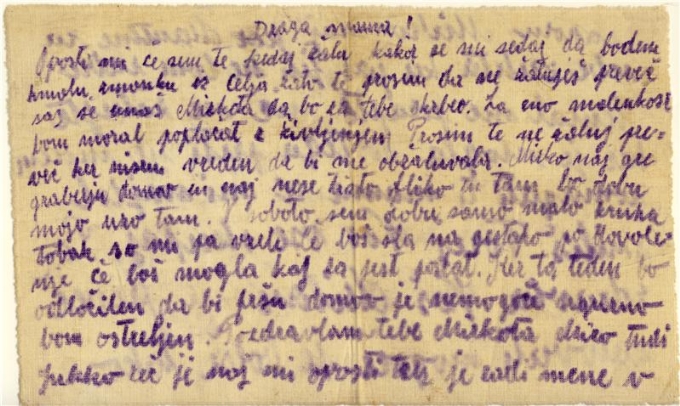 Draga mama!
Oprosti mi če sem te kedaj žalu kakor se mi sedaj da bodem
kmalu zmonku iz Celja zato te prosim da ne žaluješ preveč
saj še imaš Mirkota da bo za tebe skrbeo. Za eno malenkost
bom moral poplačat z življenjem Prosim te ne žaluj pre-
več ker nisem vreden da bi me obžaluvala. Mirko naj gre
domov en naj nese tisto sliko en tam bo dobu
mojo uro tam. V soboto sem dobu samo malo kruha
tobak so mi pa vzeli če boš šla na gestapo po dovole-
nje če boš mogla kaj za jest poslat. Ker ta teden bo
odločilen da bi pršu domov je nemogoče sigurno
bom ostreljen. Pozdravlam tebe Mirkota tudi
če je naj mi oprosti je zadi mene v